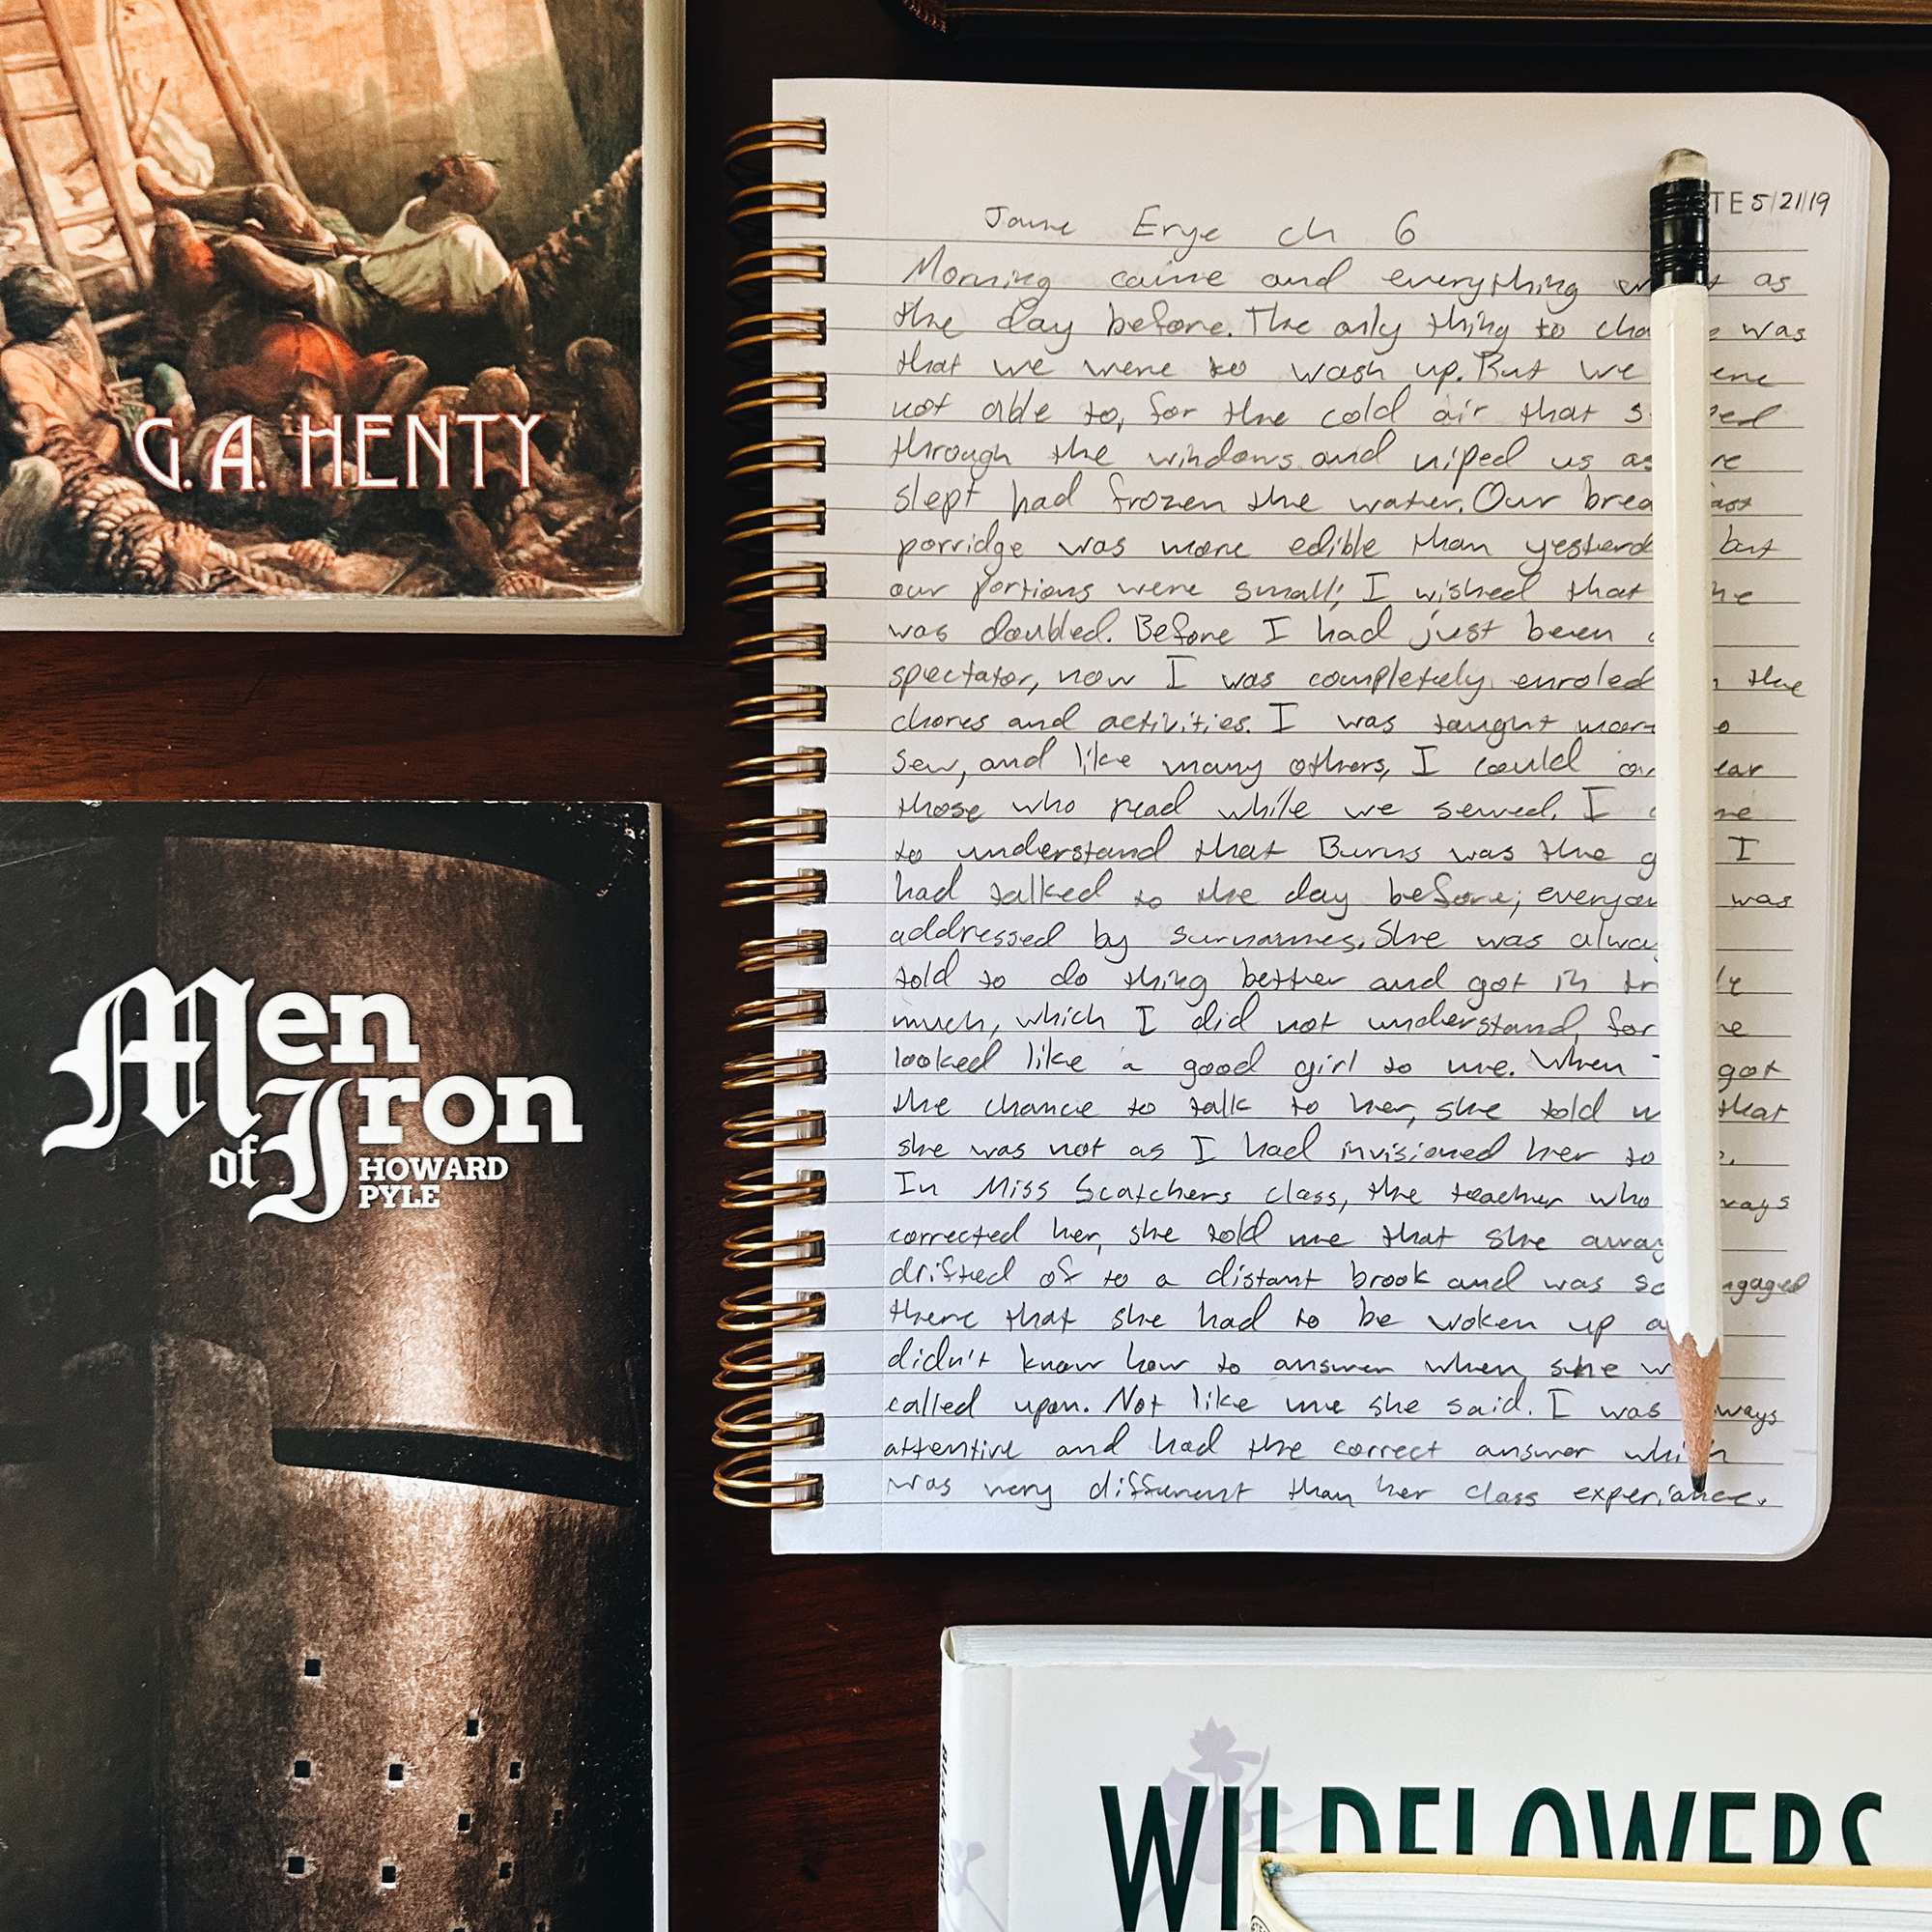 G. A. HENTY
Men
of Iron
HOWARD
PYLE
TE 5/21/19
Jane Erye ch 6
Morning came and everything as
the day before. The only thing to was
that we were to wash up. But we
not able to, for the cold air that
through the windows and niped us
slept had frozen the water. Our
porridge was more edible than but
our portions were small; I wished that
was doubled. Before I had just been
spectator, now I was completely enroled the
chores and activities. I was taught
sew, and like many others, I could
those who read while we sewed. I
to understand that Burns was the I
had talked to the day before; was
addressed by surnames. She was
told to do thing better and got in
much, which I did not understand, for
looked like a good girl to me. When got
the chance to talk to her, she told that
she was not as I had invisioned her to
In Miss Scatchers class, the teacher who
corrected her, she told me that she
drifted of to a distant brook and was
there that she had to be woken up
didn't know how to answer when she
called upon. Not like me she said. I was
attentive and had the correct answer which
was very different than her class experiance.
WILDFLOWERS